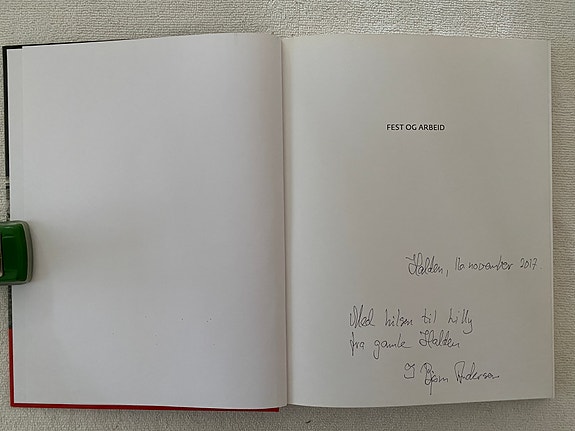 FEST OG ARBEID
Halden, 16 november 2017
Med hilsen til Lilly
fra gamle Halden
Bjørn Andersen